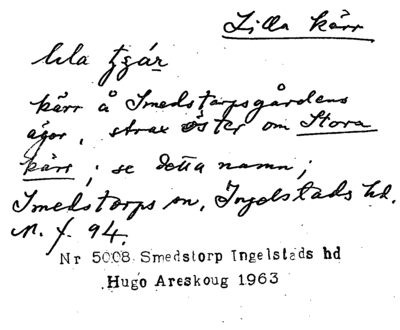 Lilla kärr
lila tzár
kärr å Smedstorpsgårdens
ägor, strax öster om Stora
kärr; se detta namn;
Smedstorps sn, Ingelstads hd.
N. f. 94.
Nr 5008 Smedstorp Ingelstads hd
Hugo Areskoug 1963